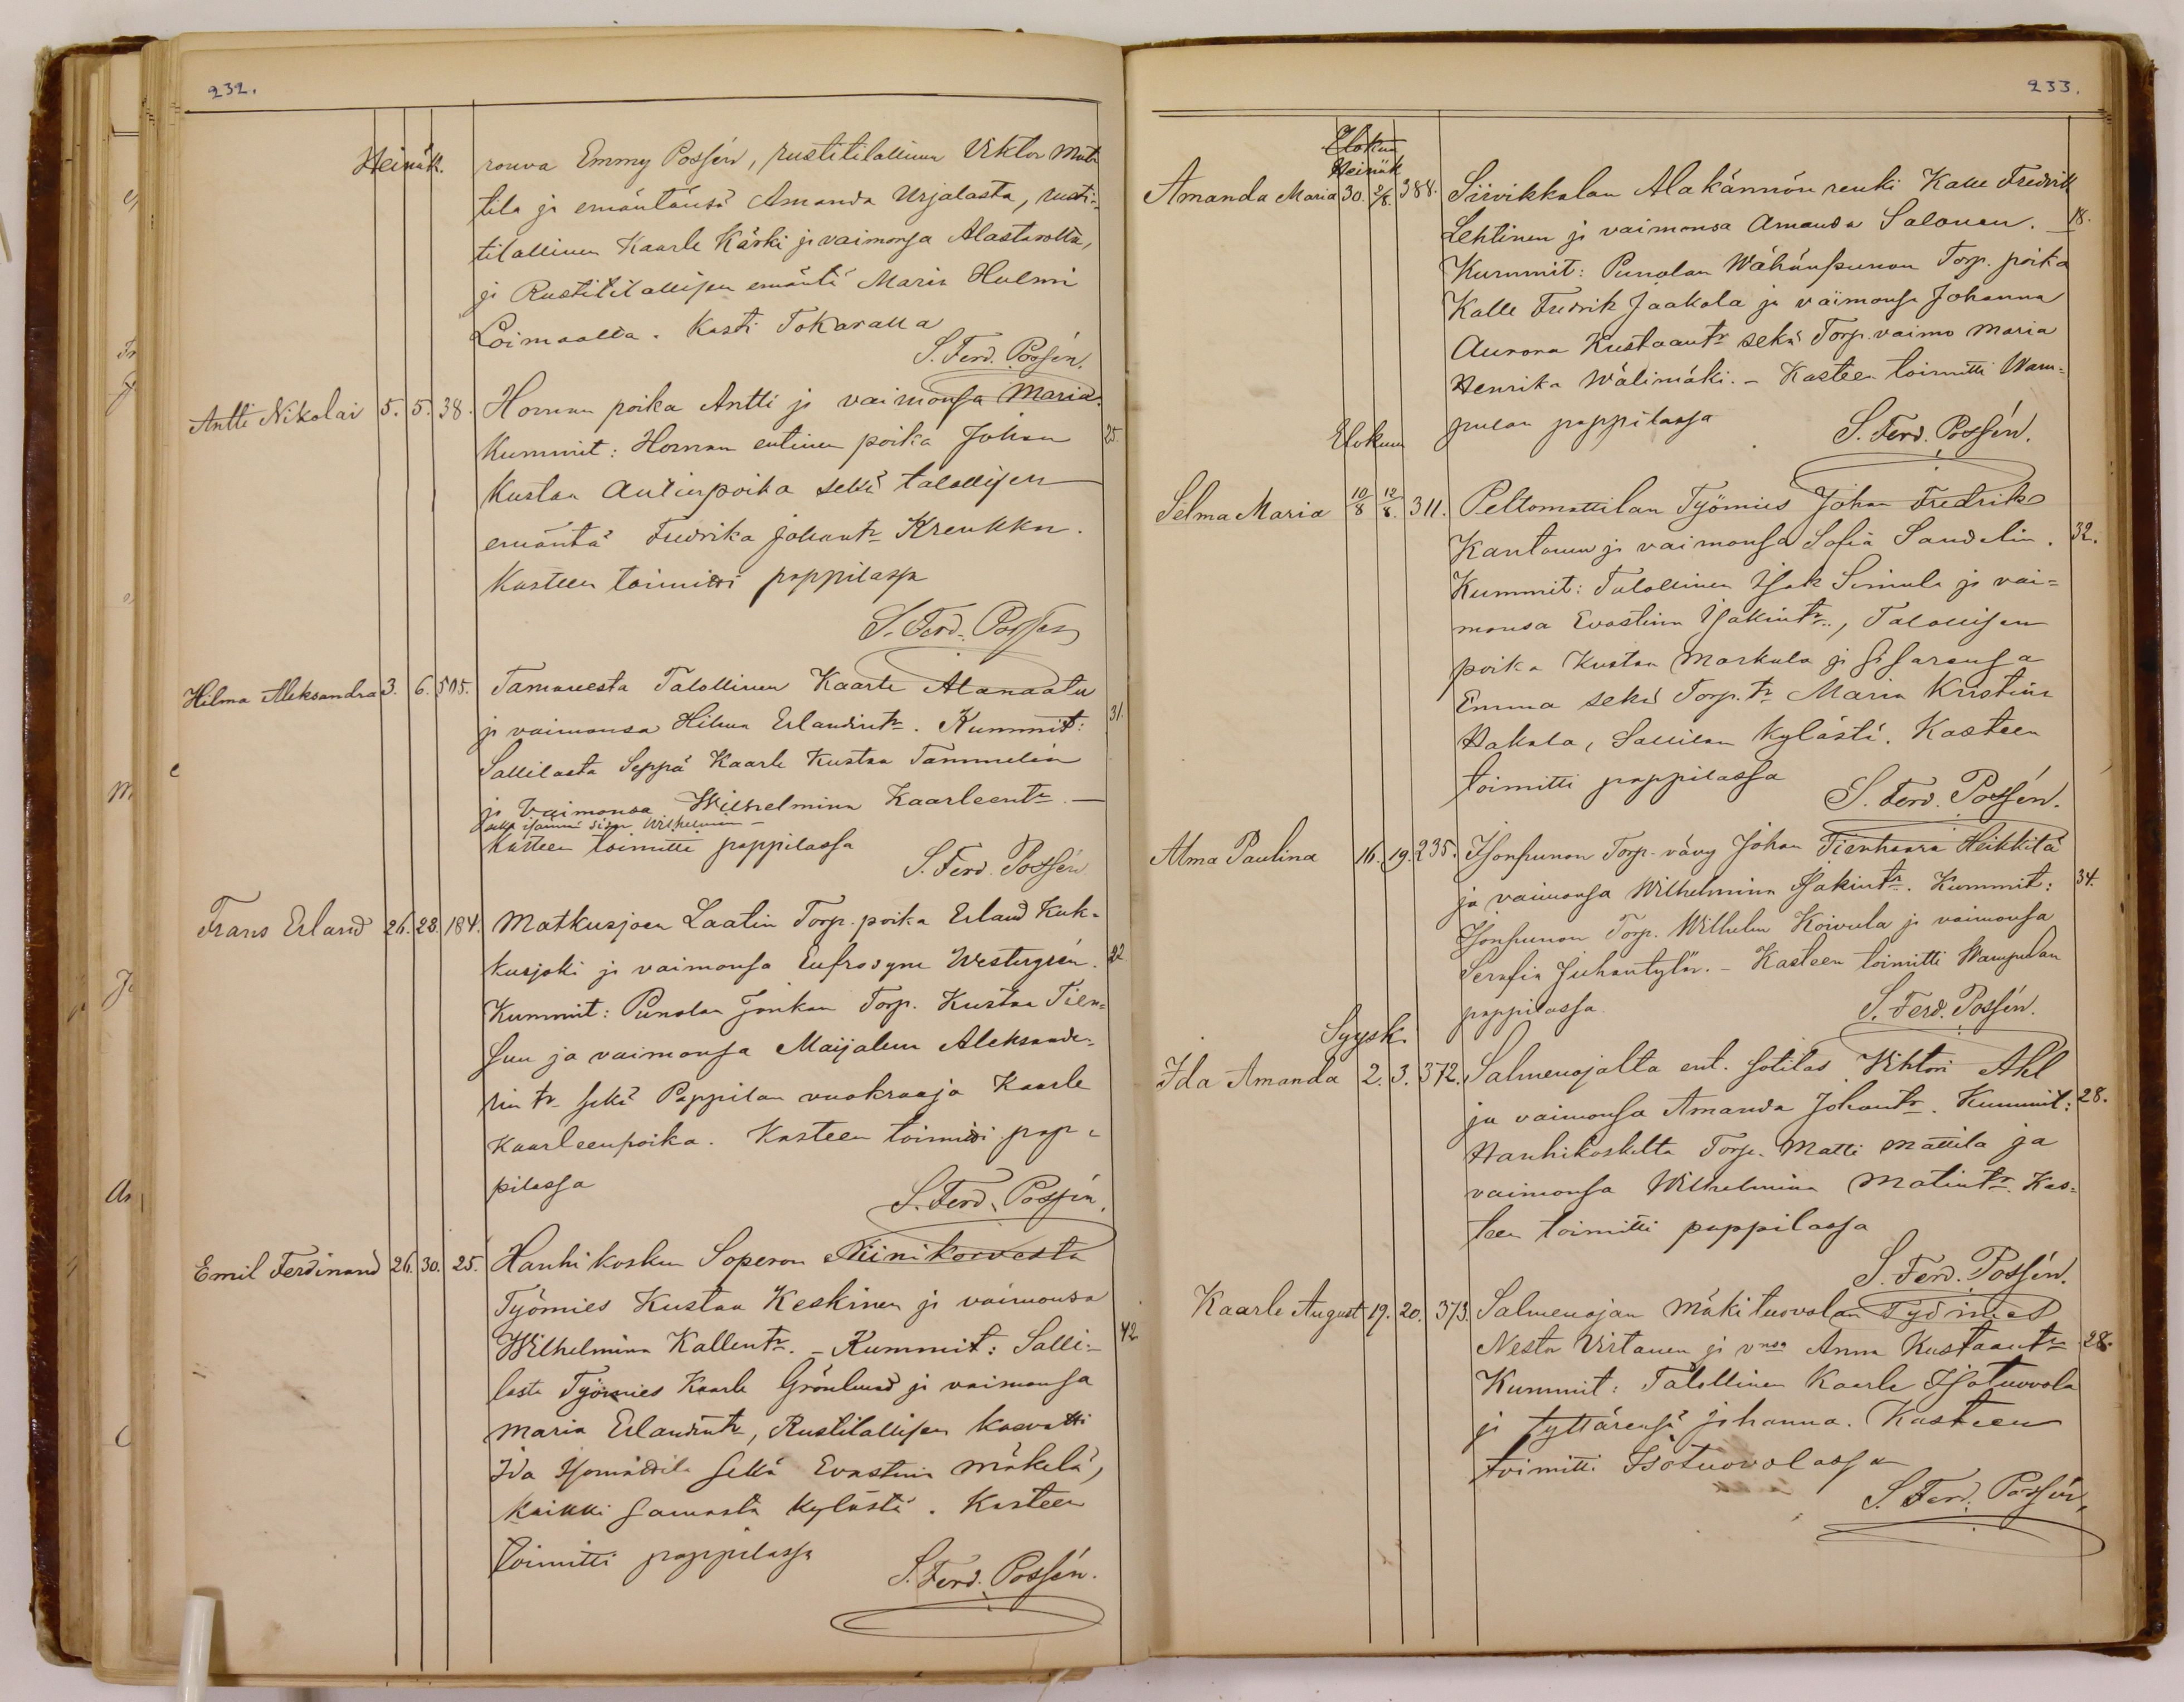 232.
Heinäk.
rouva Emmy Possén, rustitilallinen Viktor Mat-
tila ja emäntänsä Amanda Urjalasta, rusti-
tilallinen Kaarle Kärki ja vaimonsa Alastarolta,
ja Rustitilallisen emäntä Maria Hulmi
Loimaalta. Kasti Tokaralla
S. Ferd. Possén.
Antti Nikolai 5. 5. 38. Hornan poika Antti ja vaimonsa Maria. 25.
Kummit: Hornan entinen poika Johan
Kustaa Antinpoika sekä talollisen
emäntä Fredrika Johantr Krenkku.
Kasteen toimitti pappilassa
S. Ferd. Possén
Hilma Aleksandra 3. 6. 505. Tamaresta Talollinen Kaarle Alanaatu
ja vaimonsa Hilma Erlandintr. Kummit: 31.
Sallilasta Seppä Kaarle Kustaa Tammelin
ja Vaimonsa Wilhelmina Kaarleentr. —
sekä isännän sisar Wilhelmina —
Kasteen toimitti pappilassa
S. Ferd. Possén
Frans Erland 26. 28. 184. Matkusjoen Laatin Torp. poika Erland Kuk-
kusjoki ja vaimonsa Eufrosyne Westergrén. 22
Kummit: Punolan Jonkan Torp. Kustaa Tien-
suu ja vaimonsa Maijalena Aleksande-
rin tr sekä Pappilan vuokraaja Kaarle
Kaarleenpoika. Kasteen toimitti pap-
pilassa
S. Ferd. Possén.
Emil Ferdinand 26. 30. 25. Hanhikosken Soperon Niinikorvesta
Työmies Kustaa Keskinen ja vaimonsa
Wilhelmina Kallentr. - Kummit: Salli- 42
lasta Työmies Kaarle Grönlund ja vaimonsa
Maria Erlandintr, Rustitallisen kasvatti
Ida Isomattila sekä Evastiina Mäkelä,
kaikki samasta kylästä. Kasteen
toimitti pappilassa
S. Ferd. Possén.
233.
Elokuu
Heinäk
Amanda Maria 30. 2/8. 388. Siivikkalan Alakännön renki Kalle Fredrik
Lehtinen ja vaimonsa Amanda Salonen. 18.
Kummit: Punolan Wähänpunon Torp. poika
Kalle Fredrik Jaakola ja vaimonsa Johanna
Aurora Kustaantr sekä Torp. vaimo Maria
Henrika Wälimäki. - Kasteen toimitti Wam-
pulan pappilassa
S. Ferd. Possén.
Elokuu
Selma Maria 10/8 12/8. 311. Peltomattilan Työmies Johan Fredrik
Kantonen ja vaimonsa Sofia Sandelin. 32.
Kummit: Talollinen Isak Simula ja vai-
monsa Evastina Isakintr., Talollisen
poika Kustaa Markula ja sisarensa
Emma sekä Torp. tr Maria Kristina
Hakala, Sallilan kylästä. Kasteen
toimitti pappilassa
S. Ferd. Possén.
Alma Paulina 16. 19. 235. Isonpunon Torp. vävy Johan Tienhaara Heikkilä
ja vaimonsa Wilhelmina Isakintr. Kummit: 34.
Isonpunon Torp. Wilhelm Koivula ja vaimonsa
Serafia Juhantytär. - Kasteen toimitti Wampulan
pappilassa.
S. Ferd. Possén.
Syysk.
Ida Amanda 2. 3. 372. Salmenojalta ent. sotilas Vihtori Ahl
ja vaimonsa Amanda Johantr. Kummit: 28.
Hanhikoskelta Torp. Matti Mattila ja
vaimonsa Wilhelmina Matintr. Kas-
teen toimitti pappilassa
S. Ferd. Possén.
Kaarle August 19. 20. 373. Salmenojan Mäkituovolan Työmies
Nestor Virtanen ja vnsa Anna Kustaantr 28.
Kummit: Talollinen Kaarle Isotuovola
ja tyttärensä Johanna. Kasteen
toimitti Isotuovolassa
S. Ferd. Possén.